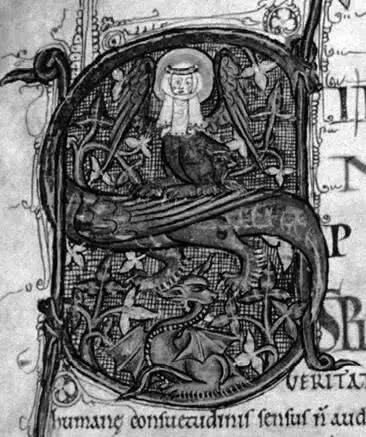 N
P
SPI
VERITAT
humanę consuetudinis sensus n̄ aud